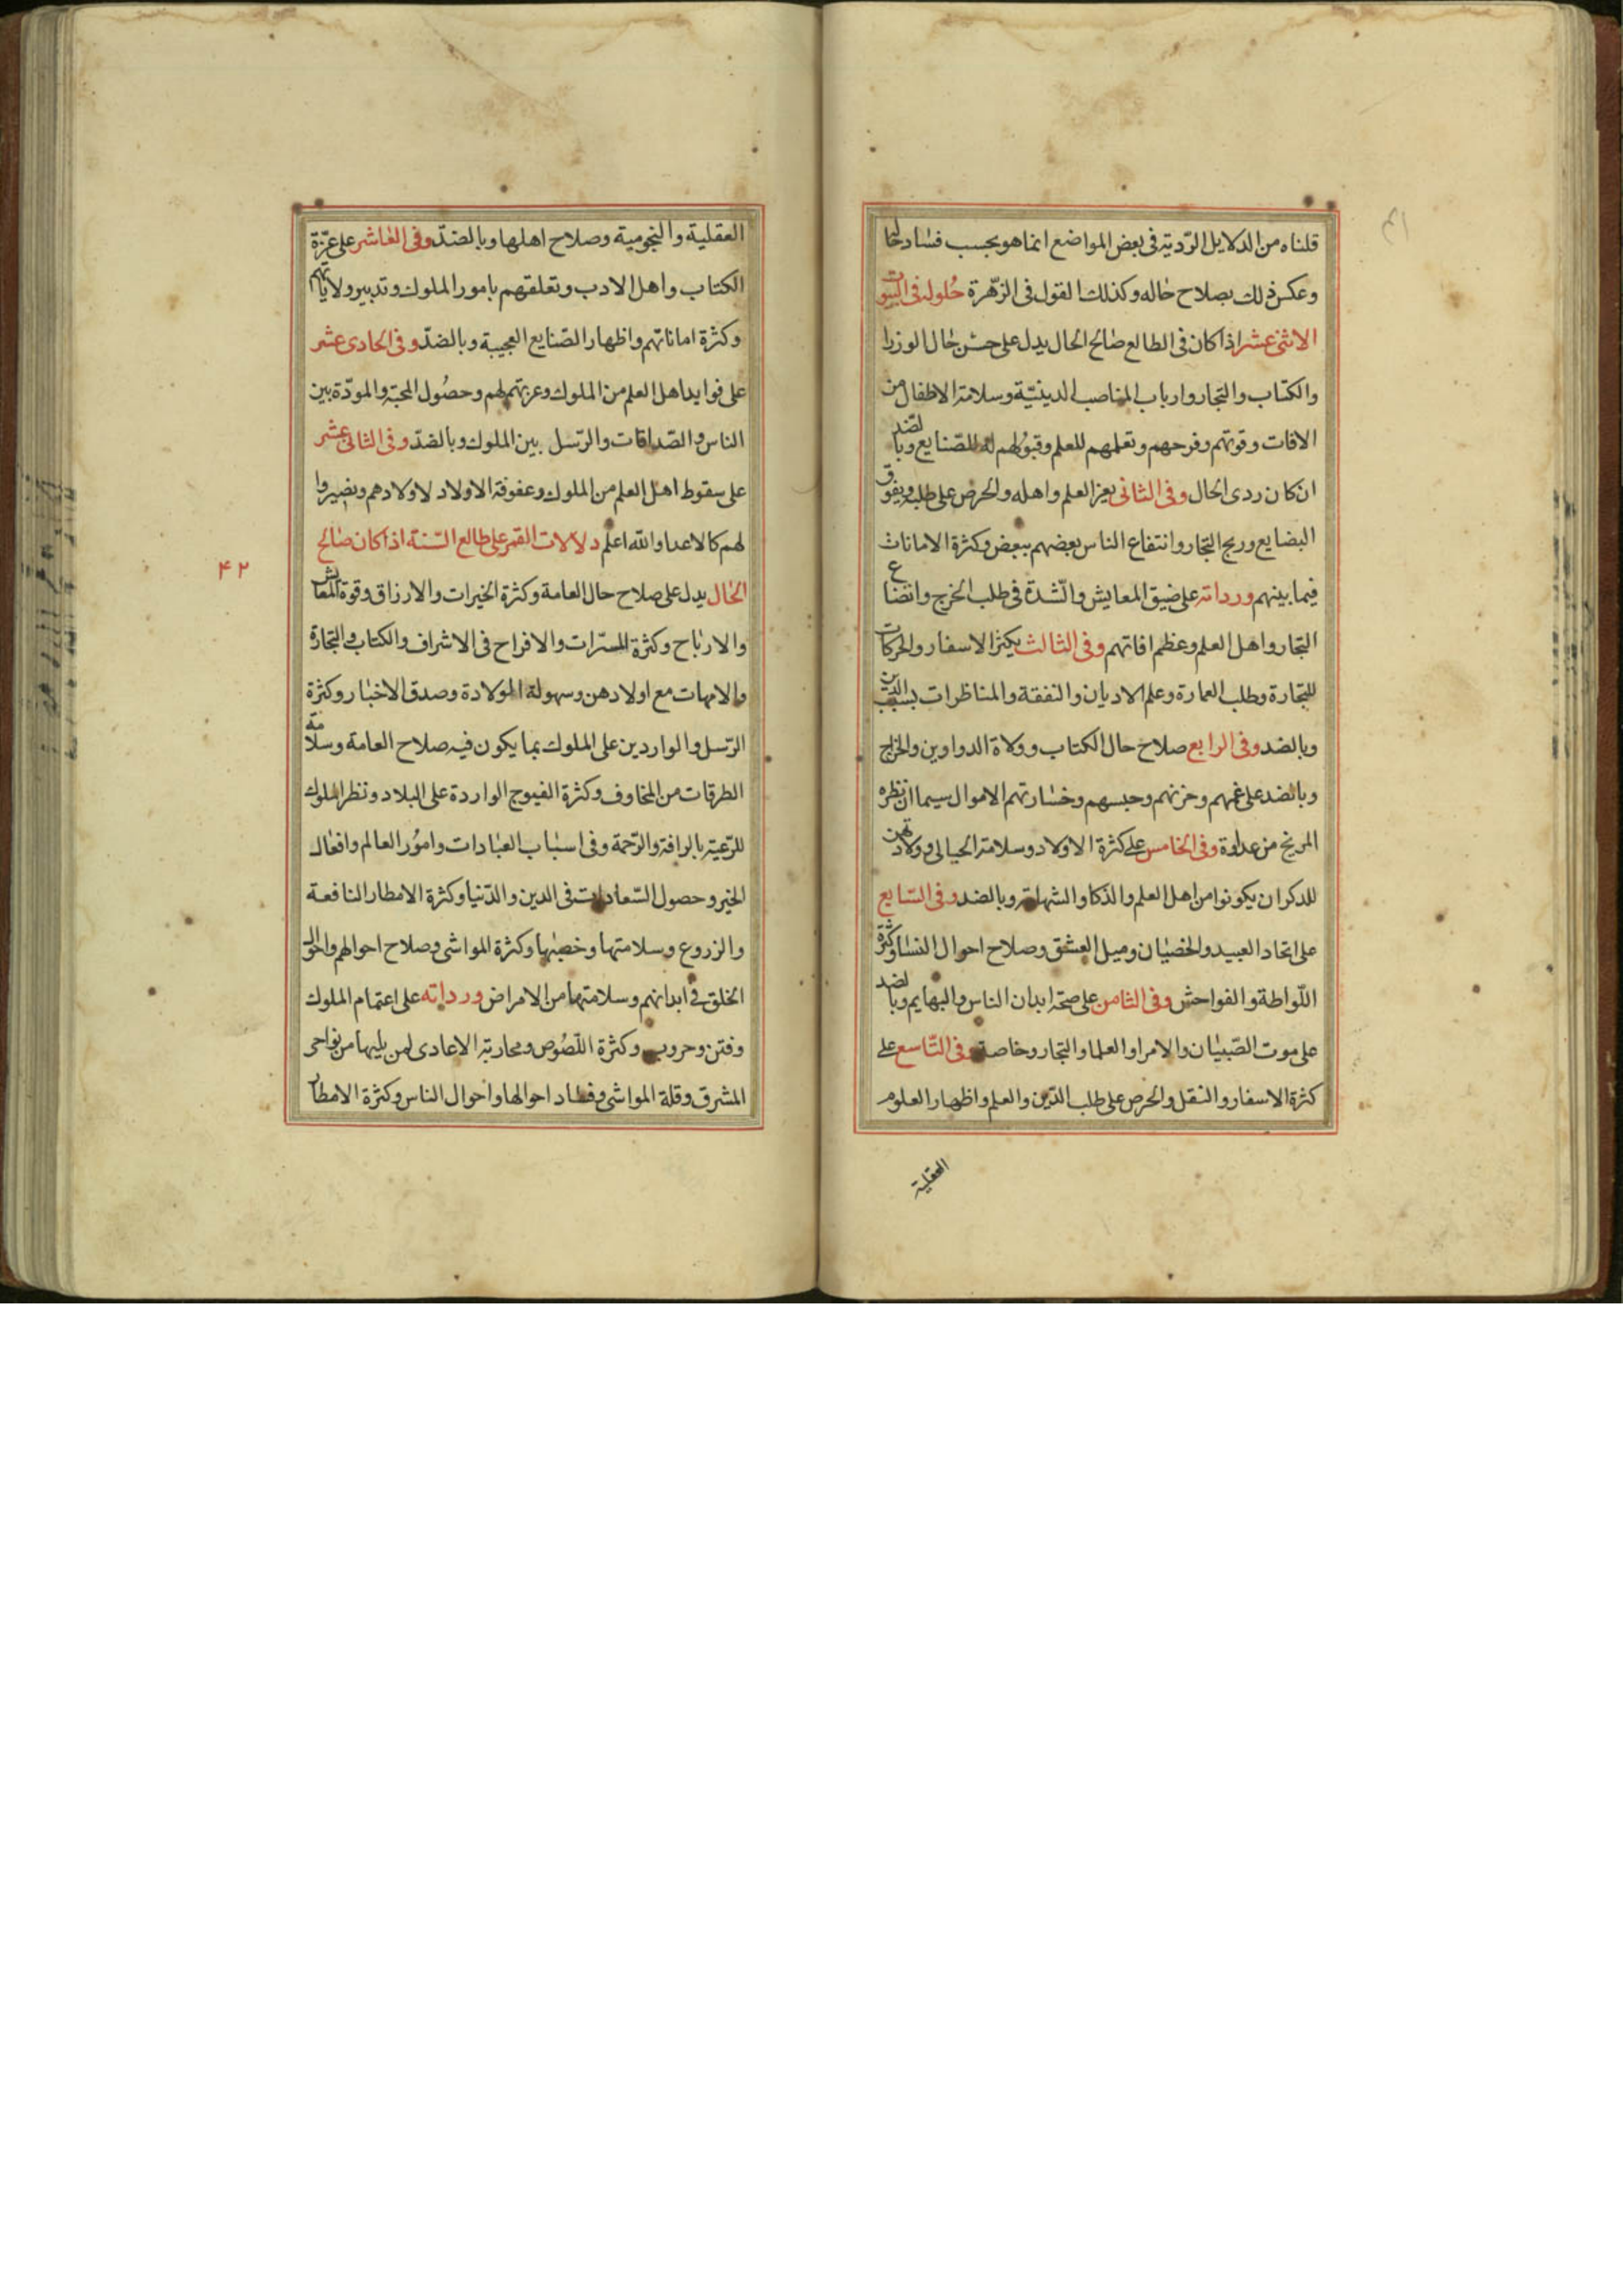 قلناه من الدلايل الرّديّة فى بعض المواضع انما هو بحسب فساد حالها
وعكس ذلك بصلاح حاله وكذلك القول فى الزّهرة حُلوله فى البيوت
الاثنى عشر اذا كان فى الطالع صالح الحال يدل على حسن حال الوزرا
والكتّاب والتجار وارباب المناصب الدينيّة وسلامة الاطفال من
الافات وقوتهم وفرحهم وتعلمهم للعلم وقبولهم له للصّنايع وبالضد
ان كان ردى الحال وفى الثانى بعز العلم واهله والحرص على طلبه وبنفوق
البضايع وربح التجار وانتفاع الناس بعضهم ببعض وكثرة الامانات
فيما بينهم ورداته على ضيق المعايش والشّدة فى طلب الخرج واتضاع
التجار واهل العلم وعظم افاتهم وفى الثالث يكثر الاسفار والحركات
للتجارة وطلب العمارة وعلم الاديان والنفقة والمناظرات بسبب الدين
وبالضد وفى الرابع صلاح حال الكتاب وولاة الدواوين والخراج
وبالضد على غمهم وحزنهم وحبسهم وخسارتهم الاموال سيما ان نظره
المريخ من عداوة وفى الخامس على كثرة الاولاد وسلامة الحبالى وولادتهن
للذكران يكونوا من اهل العلم والذكا والشهامة وبالضد وفى السّابع
على اتحاد العبيد والخصيان وميل العشق وصلاح احوال النسا وكثرة
اللّواطة والفواحش وفى الثامن على صحّة ابدان الناس والبهايم وبالضد
على موت الصّبيان والامرا والعلما والتجار وخاصة وفى التّاسع على
كثرة الاسفار والنقل والحرص على طلب الدّين والعلم واظهار العلوم
العقلية
العقلية والنجومية وصلاح اهلها وبالضدّ وفى العاشر على عزّة
الكتاب واهل الادب وتعلقهم بامور الملوك وتدبير ولاياتهم
وكثرة اماناتهم واظهار الصّنايع العجيبة وبالضدّ وفى الحادى عشر
على فوايد اهل العلم من الملوك وعزتهم لهم وحصُول المحبّة والمودّة بين
الناس والصّداقات والرّسل بين الملوك وبالضدّ وفى الثانى عشر
على سقوط اهل العلم من الملوك وعقوقة الاولاد لاولادهم ويصيروا
لهم كالاعدا والله اعلم دلالات القمر على طالع السّنة اذا كان صالح
الحال يدل على صلاح حال العامة وكثرة الخيرات والارزاق وقوة المعاش
والارباح وكثرة المسرّات والافراح فى الاشراف والكتاب والتجارة
والامهات مع اولادهن وسهولة المولادة وصدق الاخبار وكثرة
الرّسل والواردين على الملوك بما يكون فيه صلاح العامة وسلامة
الطرقات من المخاوف وكثرة الفيوج الواردة على البلاد ونظر الملوك
للرّعية بالرافة والرّحمة وفى اسباب العبادات وامُور العالم وافعال
الخير وحصول السّعادات فى الدين والدّنيا وكثرة الامطار النافعة
والزروع وسلامتها وخصبها وكثرة المواشى وصلاح احوالهم واحوال
الخلق فى ابدانهم وسلامتها من الامراض ورداته على اغتمام الملوك
وفتن وحروب وكثرة اللّصُوص ومحاربة الاعادى لمن يليها من نواحى
المشرق وقلة المواشى وفساد احوالها واحوال الناس وكثرة الامطار
۴۲